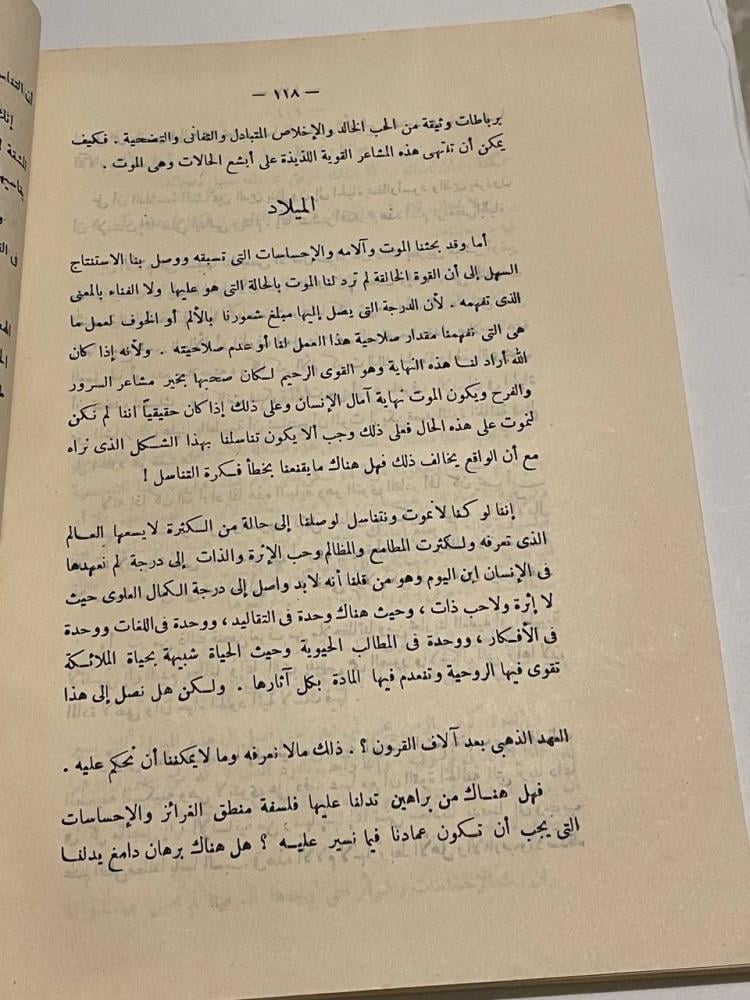 — ١١٨ —
برباطات وثيقة من الحب الخالد والإخلاص المتبادل والتفانى والتضحية . فكيف
يمكن أن تنتهى هذه المشاعر القوية اللذيذة على أبشع الحالات وهى الموت .
الميلاد
أما وقد بحثنا الموت وآلامه والإحساسات التى تسبقه ووصل بنا الاستنتاج
السهل إلى أن القوة الخالقة لم ترد لنا الموت بالحالة التى هو عليها ولا الفناء بالمعنى
الذى تفهمه . لأن الدرجة التى يصل إليها مبلغ شعورنا بالألم أو الخوف لعمل ما
هى التى تفهمنا مقدار صلاحية هذا العمل لنا أو عدم صلاحيته . ولأنه إذا كان
الله أراد لنا هذه النهاية وهو القوى الرحيم لكان صحبها بخير مشاعر السرور
والفرح ويكون الموت نهاية آمال الإنسان وعلى ذلك إذا كان حقيقياً اننا لم نكن
لنموت على هذه الحال فعلى ذلك وجب ألا يكون تناسلنا بهذا الشكل الذى نراه
مع أن الواقع يخالف ذلك فهل هناك ما يقنعنا بخطأ فكرة التناسل !
إننا لو كنا لا نموت ونتناسل لوصلنا إلى حالة من الكثرة لا يسعها العالم
الذى نعرفه ولكثرت المطامع والمظالم وحب الإثرة والذات إلى درجة لم نعهدها
فى الإنسان ابن اليوم وهو من قلنا أنه لابد واصل إلى درجة الكمال العلوى حيث
لا إثرة ولاحب ذات ، وحيث هناك وحدة فى التقاليد ، ووحدة فى اللغات ووحدة
فى الأفكار ، ووحدة فى المطالب الحيوية وحيث الحياة شبيهة بحياة الملائكة
تقوى فيها الروحية وتنعدم فيها المادة بكل آثارها . ولكن هل نصل إلى هذا
العهد الذهبى بعد آلاف القرون ؟ . ذلك مالا نعرفه وما لا يمكننا أن نحكم عليه .
فهل هناك من براهين تدلنا عليها فلسفة منطق الغرائز والإحساسات
التى يجب أن تكون عمادنا فيما نسير عليه ؟ هل هناك برهان دامغ يدلنا